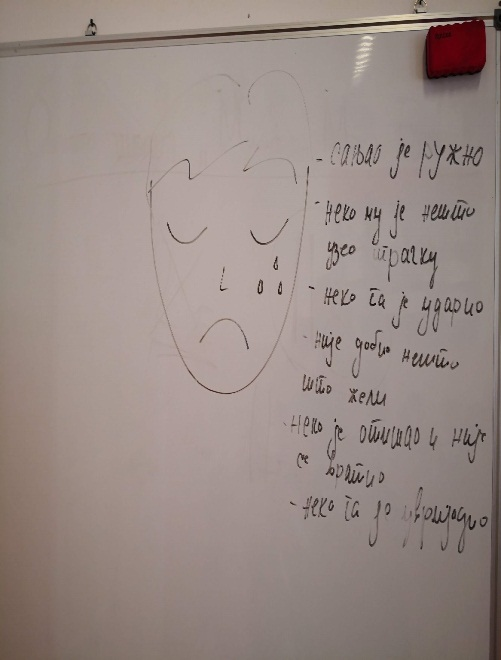 - сањао је ружно
- неко му је нешто
узео
- неко га је ударио
- није добио нешто
што жели
- неко је отишао и није
се вратио
- неко га је увриједио